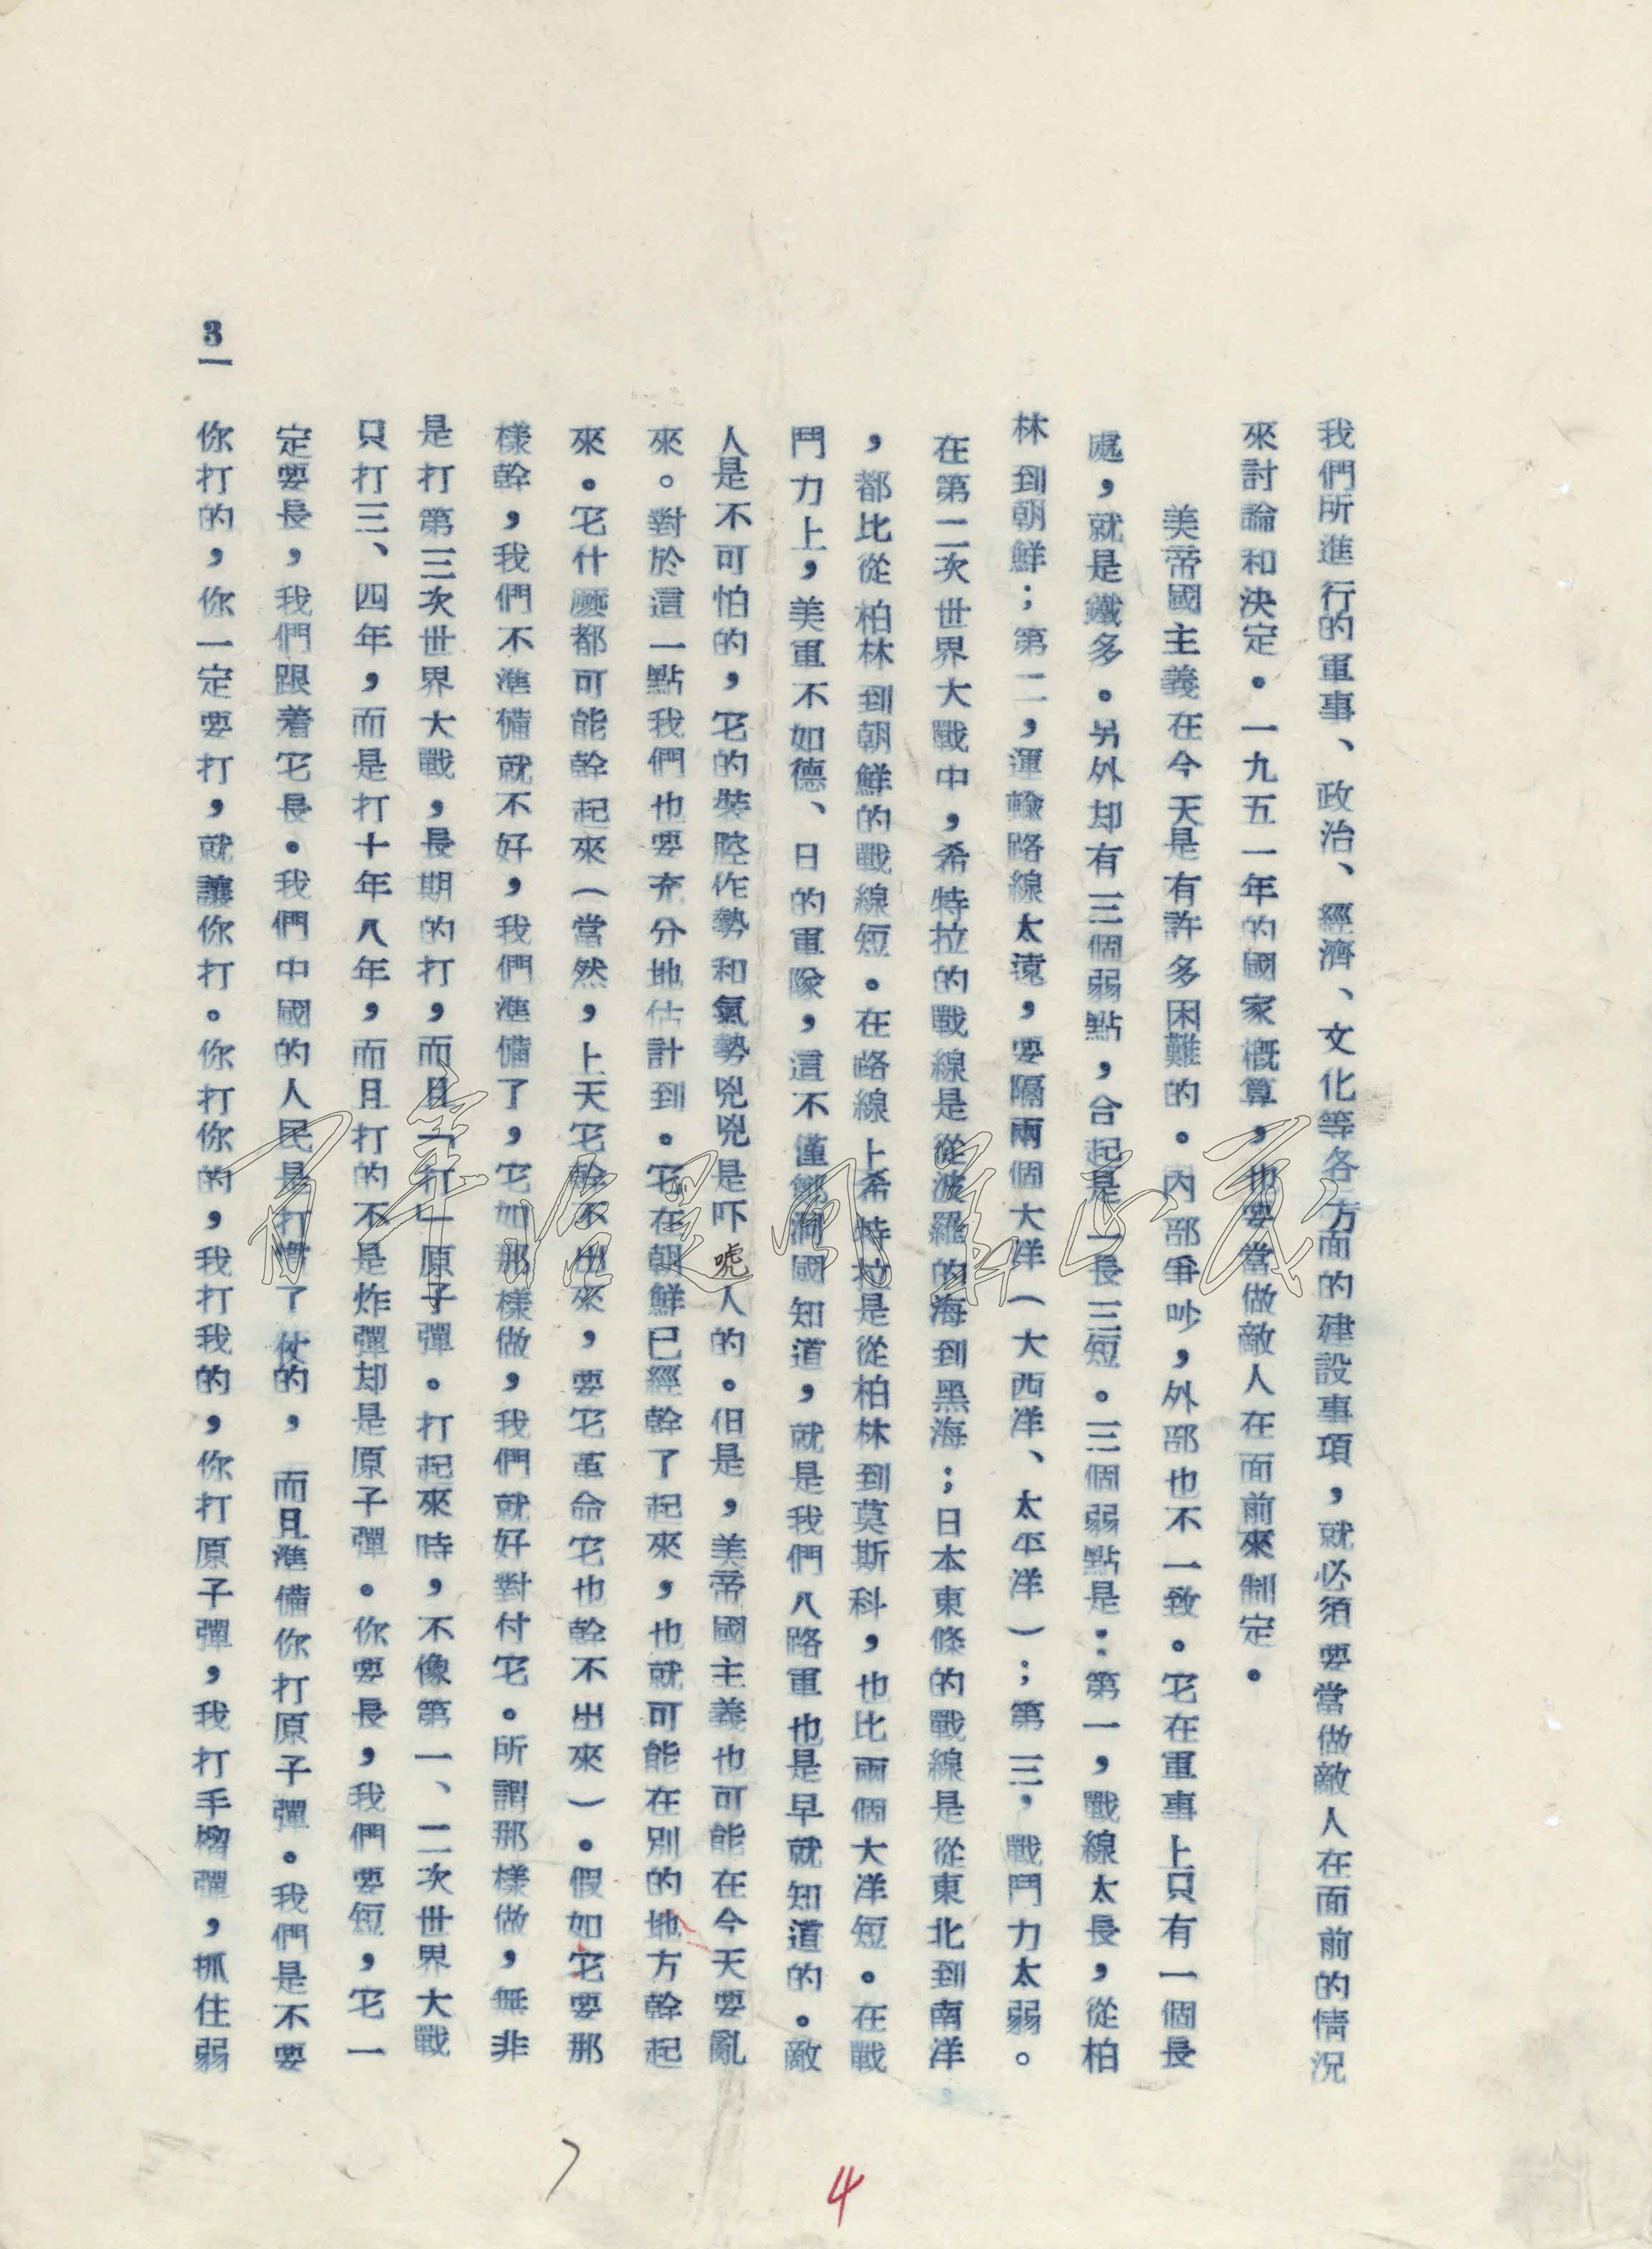 我們所進行的軍事、政治、經濟、文化等各方面的建設事項，就必須要當做敵人在面前的情況
來討論和決定。一九五一年的國家概算，也要當做敵人在面前來制定。
美帝國主義在今天是有許多困難的。內部爭吵，外部也不一致。它在軍事上只有一個長
處，就是鐵多。另外却有三個弱點，合起是一長三短。三個弱點是：第一，戰線太長，從柏
林到朝鮮；第二，運輸路線太遠，要隔兩個大洋（大西洋、太平洋）；第三，戰鬥力太弱。
在第二次世界大戰中，希特拉的戰線是從波羅的海到黑海；日本東條的戰線是從東北到南洋
，都比從柏林到朝鮮的戰線短。在路線上希特拉是從柏林到莫斯科，也比兩個大洋短。在戰
鬥力上，美軍不如德、日的軍隊，這不僅鄉濶國知道，就是我們八路軍也是早就知道的。敵
人是不可怕的，它的裝腔作勢和氣勢兇兇是吓唬人的。但是，美帝國主義也可能在今天要亂
來。對於這一點我們也要充分地估計到。它在朝鮮已經幹了起來，也就可能在別的地方幹起
來。它什麼都可能幹起來（當然，上天它幹不出來，要它革命它也幹不出來）。假如它要那
樣幹，我們不準備就不好，我們準備了，它如那樣做，我們就好對付它。所謂那樣做，無非
是打第三次世界大戰，長期的打，而且「打」原子彈。打起來時，不像第一、二次世界大戰
只打三、四年，而是打十年八年，而且打的不是炸彈却是原子彈。你要長，我們要短，它一
定要長，我們跟着它長。我們中國的人民是打慣了仗的，而且準備你打原子彈。我們是不要
你打的，你一定要打，就讓你打。你打你的，我打我的，你打原子彈，我打手榴彈，抓住弱
3
7
4